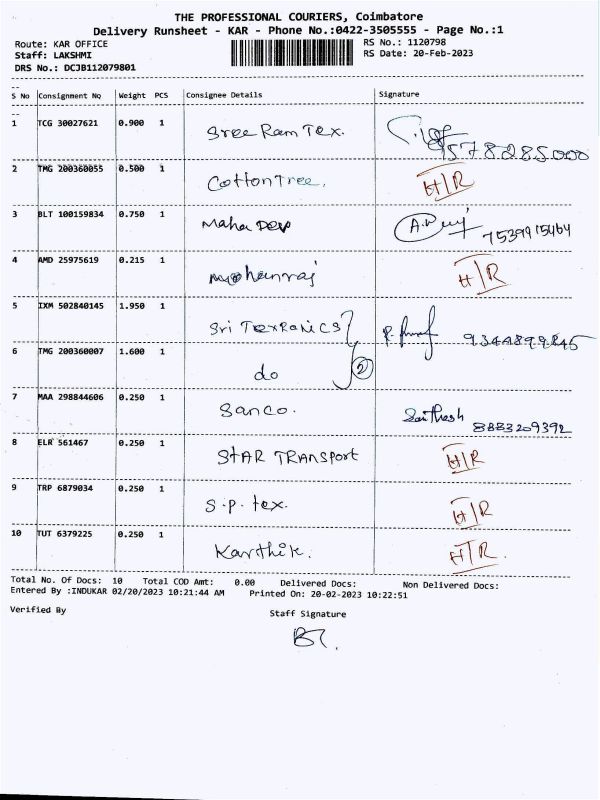 THE PROFESSIONAL COURIERS, Coimbatore
Delivery Runsheet - KAR - Phone No.:0422-3505555 - Page No.:1
Route: KAR OFFICE RS No.: 1120798
Staff: LAKSHMI RS Date: 20-Feb-2023
DRS No.: DCJB112079801
S No Consignment No Weight PCS Consignee Details Signature
1 TCG 30027621 0.900 1
Sree Ram Tex.
9578285000
2 TMG 200360055 0.500 1
Cotton Tree. H/R
3 BLT 100159834 0.750 1
Maha Dev 7539915464
4 AMD 25975619 0.215 1
Mohanraj H/R
5 IXM 502840145 1.950 1
Sri Texronics 9344899845
6 TMG 200360007 1.600 1
do 2
7 MAA 298844606 0.250 1
Sanco. 8883209392
8 ELR 561467 0.250 1
STAR TRANSPORT H/R
9 TRP 6879034 0.250 1
S.P. tex. H/R
10 TUT 6379225 0.250 1
Karthik. H/R.
Total No. Of Docs: 10 Total COD Amt: 0.00 Delivered Docs: Non Delivered Docs:
Entered By :INDUKAR 02/20/2023 10:21:44 AM Printed On: 20-02-2023 10:22:51
Verified By Staff Signature